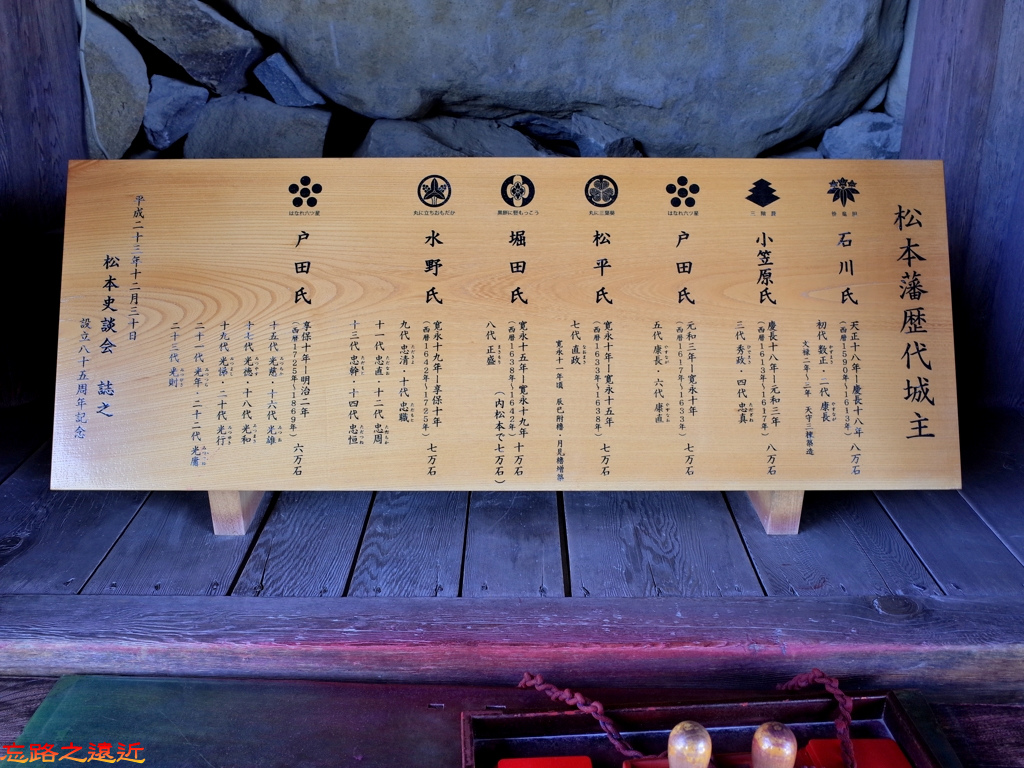 松本藩歴代城主
石川氏
天正十八年－慶長十八年 八万石
(西暦1590年～1613年)
初代 数正・二代 康長
文禄二年～三年 天守三棟築造
三階菱
小笠原氏
慶長十八年－元和三年 八万石
(西暦1613年～1617年)
三代 秀政・四代 忠真
はなれ六ツ星
戸田氏
元和三年－寛永十年 七万石
(西暦1617年～1633年)
五代 康長・六代 康直
丸に三葉葵
松平氏
寛永十年－寛永十五年 七万石
(西暦1633年～1638年)
七代 直政
寛永十一年頃 辰巳附櫓・月見櫓増築
堀田氏
寛永十五年－寛永十九年 十万石
(西暦1638年～1642年)
(内松本で七万石)
八代 正盛
丸に立ちおもだか
水野氏
寛永十九年－享保十年 七万石
(西暦1642年～1725年)
九代 忠清・十代 忠職
十一代 忠直・十二代 忠周
十三代 忠幹・十四代 忠恒
はなれ六ツ星
戸田氏
享保十年－明治二年 六万石
(西暦1725年～1869年)
十五代 光慈・十六代 光雄
十七代 光徳・十八代 光和
十九代 光悌・二十代 光行
二十一代 光年・二十二代 光庸
二十三代 光則
平成二十三年十二月三十日
松本史談会 誌之
設立八十五周年記念
忘路之遠近